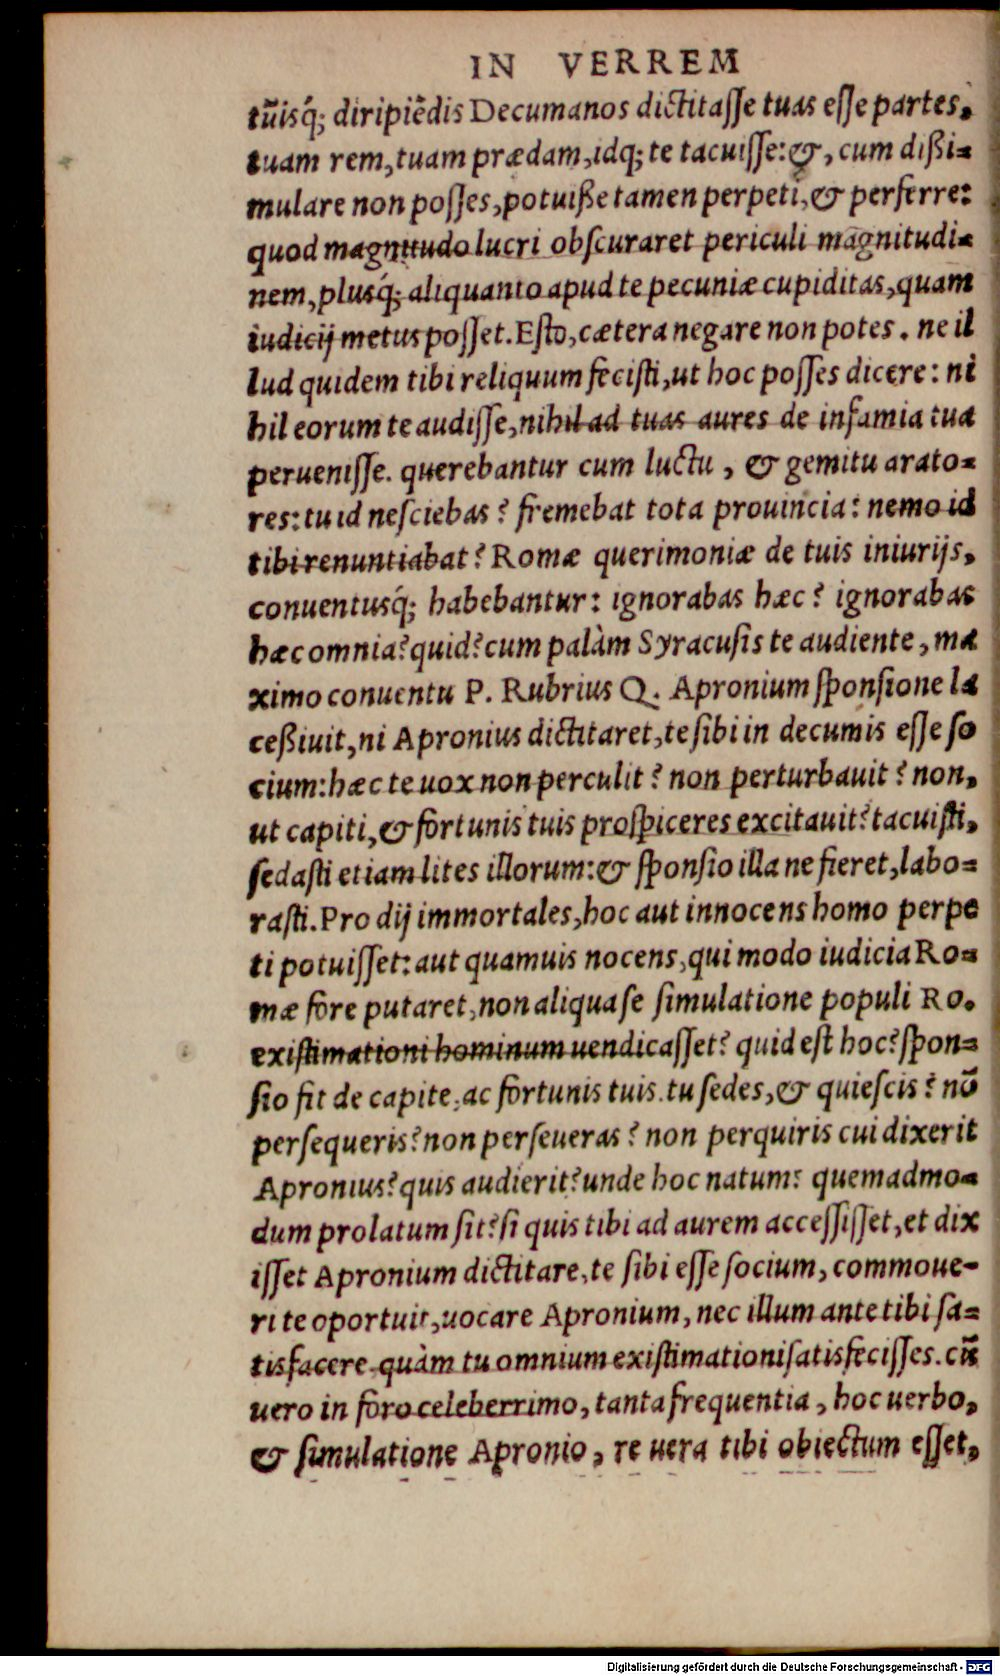 IN VERREM
tũisq́; diripiẽdis Decumanos dictitasse tuas esse partes,
tuam rem, tuam prædam, idq; te tacuisse: &, cum dißi-
mulare non posses, potuiße tamen perpeti, & perferre:
quod magnitudo lucri obscuraret periculi magnitudi-
nem, plusq́; aliquanto apud te pecuniæ cupiditas, quam
iudicij metus posset. Esto, cætera negare non potes. ne il
lud quidem tibi reliquum fecisti, ut hoc posses dicere: ni
hil eorum te audisse, nihil ad tuas aures de infamia tua
peruenisse. querebantur cum luctu, & gemitu arato-
res: tu id nesciebas? fremebat tota prouincia: nemo id
tibi renuntiabat? Romæ querimoniæ de tuis iniurijs,
conuentusq́; habebantur: ignorabas hæc? ignorabas
hæc omnia? quid? cum palàm Syracusis te audiente, ma
ximo conuentu P. Rubrius Q. Apronium sponsione la
ceßiuit, ni Apronius dictitaret, te sibi in decumis esse so
cium: hæc te uox non perculit? non perturbauit? non,
ut capiti, & fortunis tuis prospiceres excitauit? tacuisti,
sedasti etiam lites illorum: & sponsio illa ne fieret, labo-
rasti. Pro dij immortales, hoc aut innocens homo perpe
ti potuisset: aut quamuis nocens, qui modo iudicia Ro-
mæ fore putaret, non aliqua se simulatione populi Ro.
existimationi hominum uendicasset? quid est hoc? spon-
sio fit de capite, ac fortunis tuis. tu sedes, & quiescis? nõ
persequeris? non perseueras? non perquiris cui dixerit
Apronius? quis audierit? unde hoc natum? quemadmo-
dum prolatum sit? si quis tibi ad aurem accessisset, et dix
isset Apronium dictitare, te sibi esse socium, commoue-
ri te oportuit, uocare Apronium, nec illum ante tibi sa-
tisfacere quàm tu omnium existimationi satisfecisses. cũ
uero in foro celeberrimo, tanta frequentia, hoc uerbo,
& simulatione Apronio, re uera tibi obiectum esset,
Digitalisierung gefördert durch die Deutsche Forschungsgemeinschaft - DFG